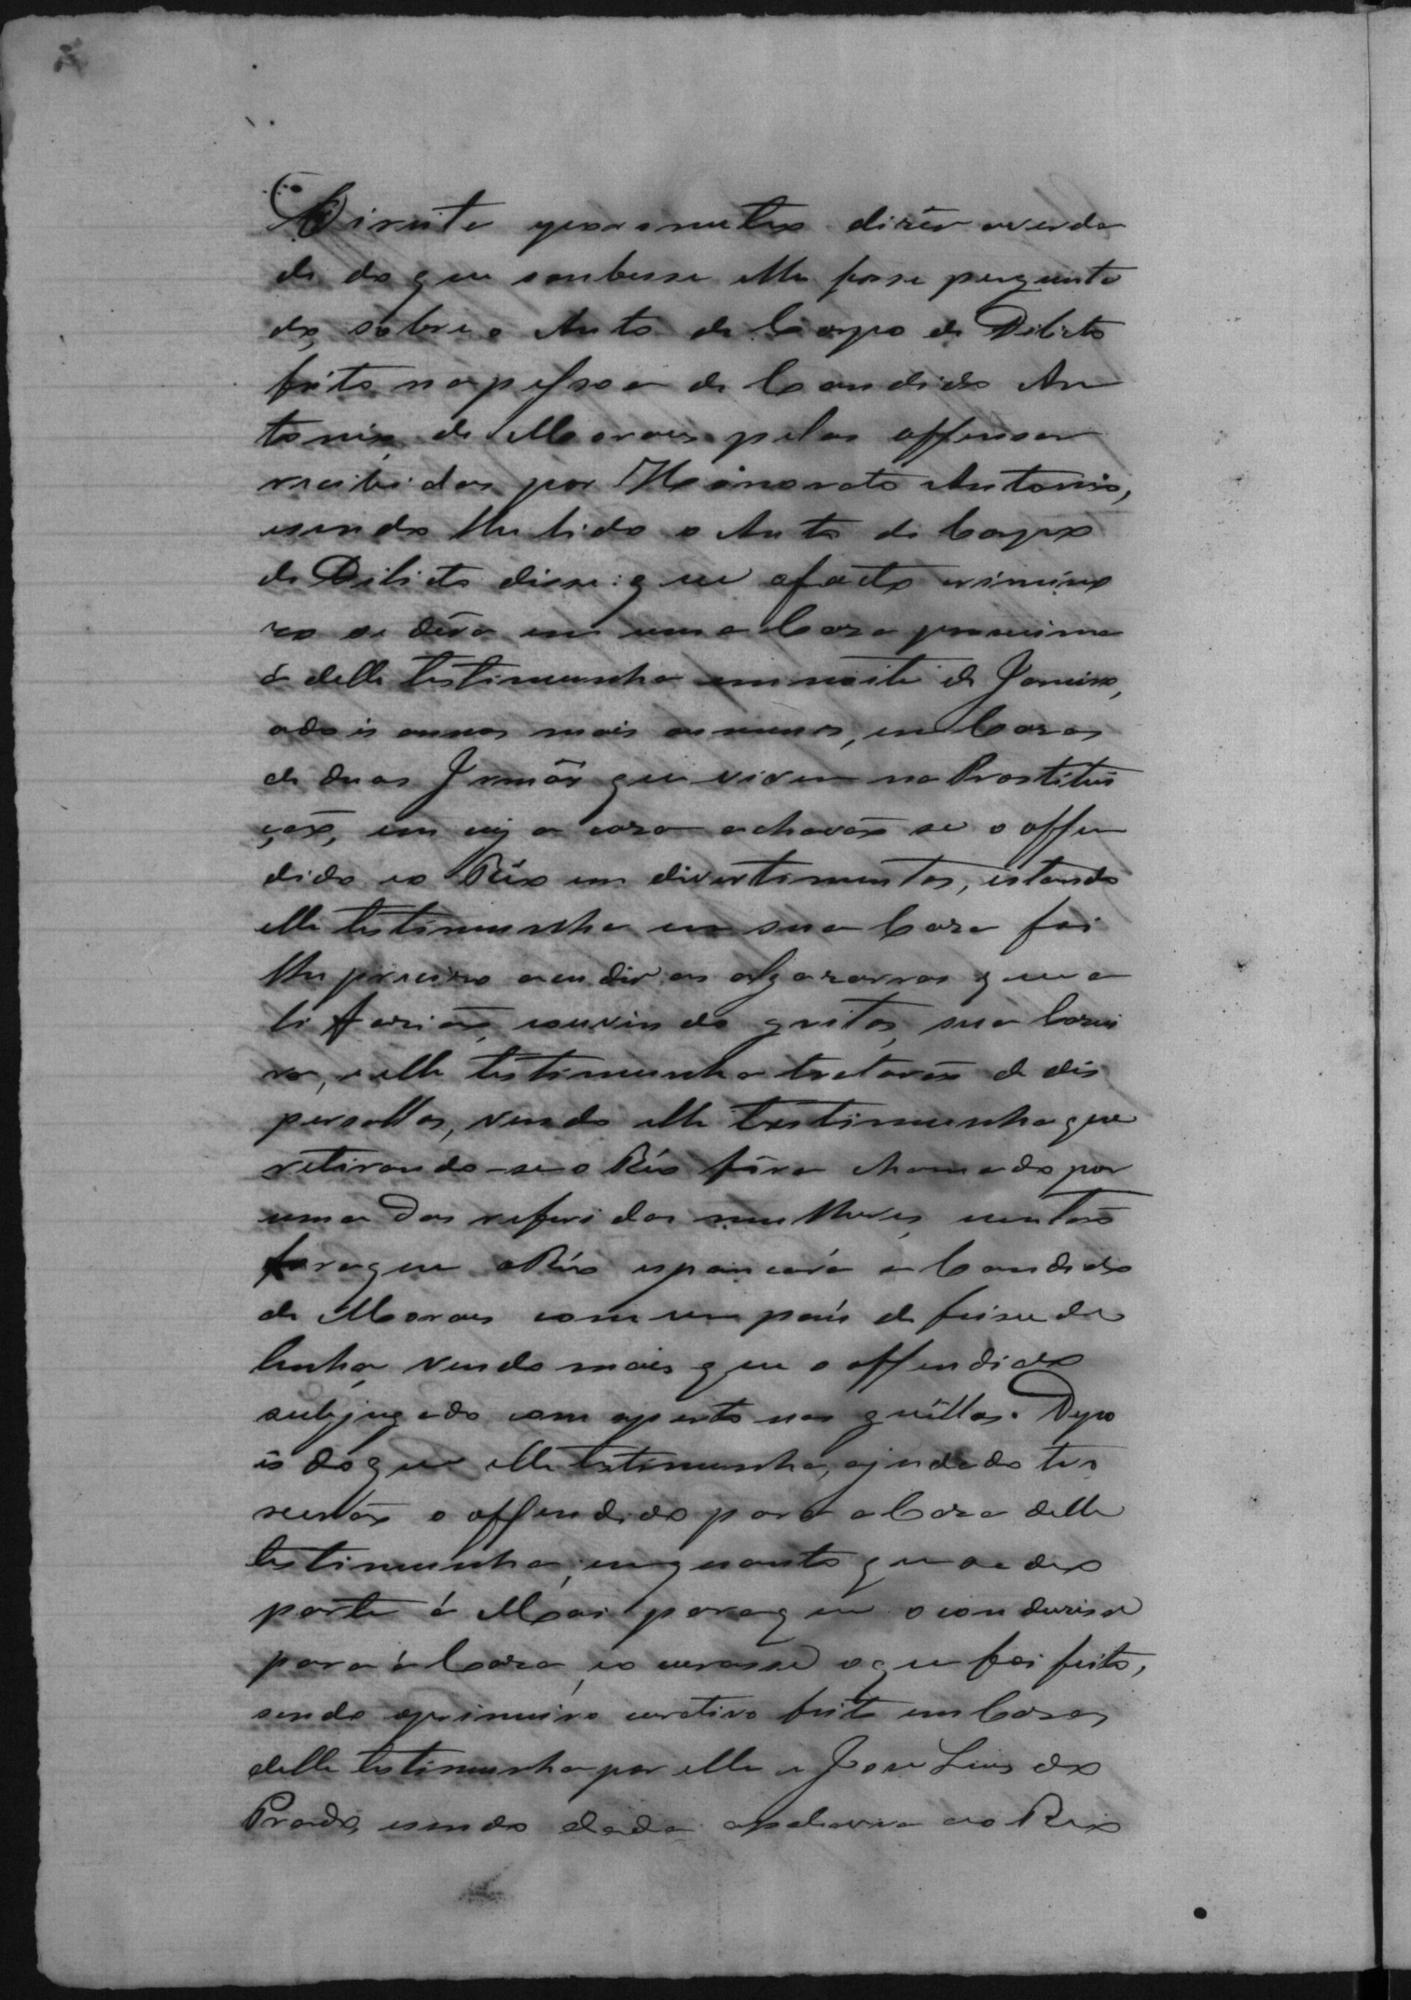 Direita prometteo dizer a verda
de do que soubesse e lhe fosse pergunta
do, sobre o Auto de Corpo de Delicto
feito na pessoa de Candido An
tonio de Moraes pelas offensas
recebidas por Honorato Antonio,
e sendo lhe lido o Auto de Corpo
de Delicto disse: que o facto crimino
so se déra em uma Casa proxima
á delle testimunha em noite de Janeiro,
a dois annos mais ou menos, em Casa
de duas Irmãs que vivem na Prostitui
ção, em cuja casa achavão se o offen
dido e o Réo em divertimentos, estando
elle testimunha em sua Casa foi
lhe preciso acudir as algazarras que a
li fazião, e ouvindo gritos, sua
e elle testimunha tratarão de dis
persallos, vendo elle testimunha que
retirando-se o Réo fôra chamado por
uma das referidas mulheres, e então
fora que o Réo espancára a Candido
de Moraes com um páu de feixe de
lenha, vendo mais que o offendido
subjugado com aperto nas guéllas. Depo
is do que elle testimunha, ajudado
o offendido para a Casa delle
testimunha, emquanto que se deo
parte á Mãi para que o conduzisse
para á Casa, e o curasse o que foi feito,
sendo o primeiro curativo feito em Casa
delle testimunha por elle e José Luis do
Prado, e sendo dada a palavra ao Réo